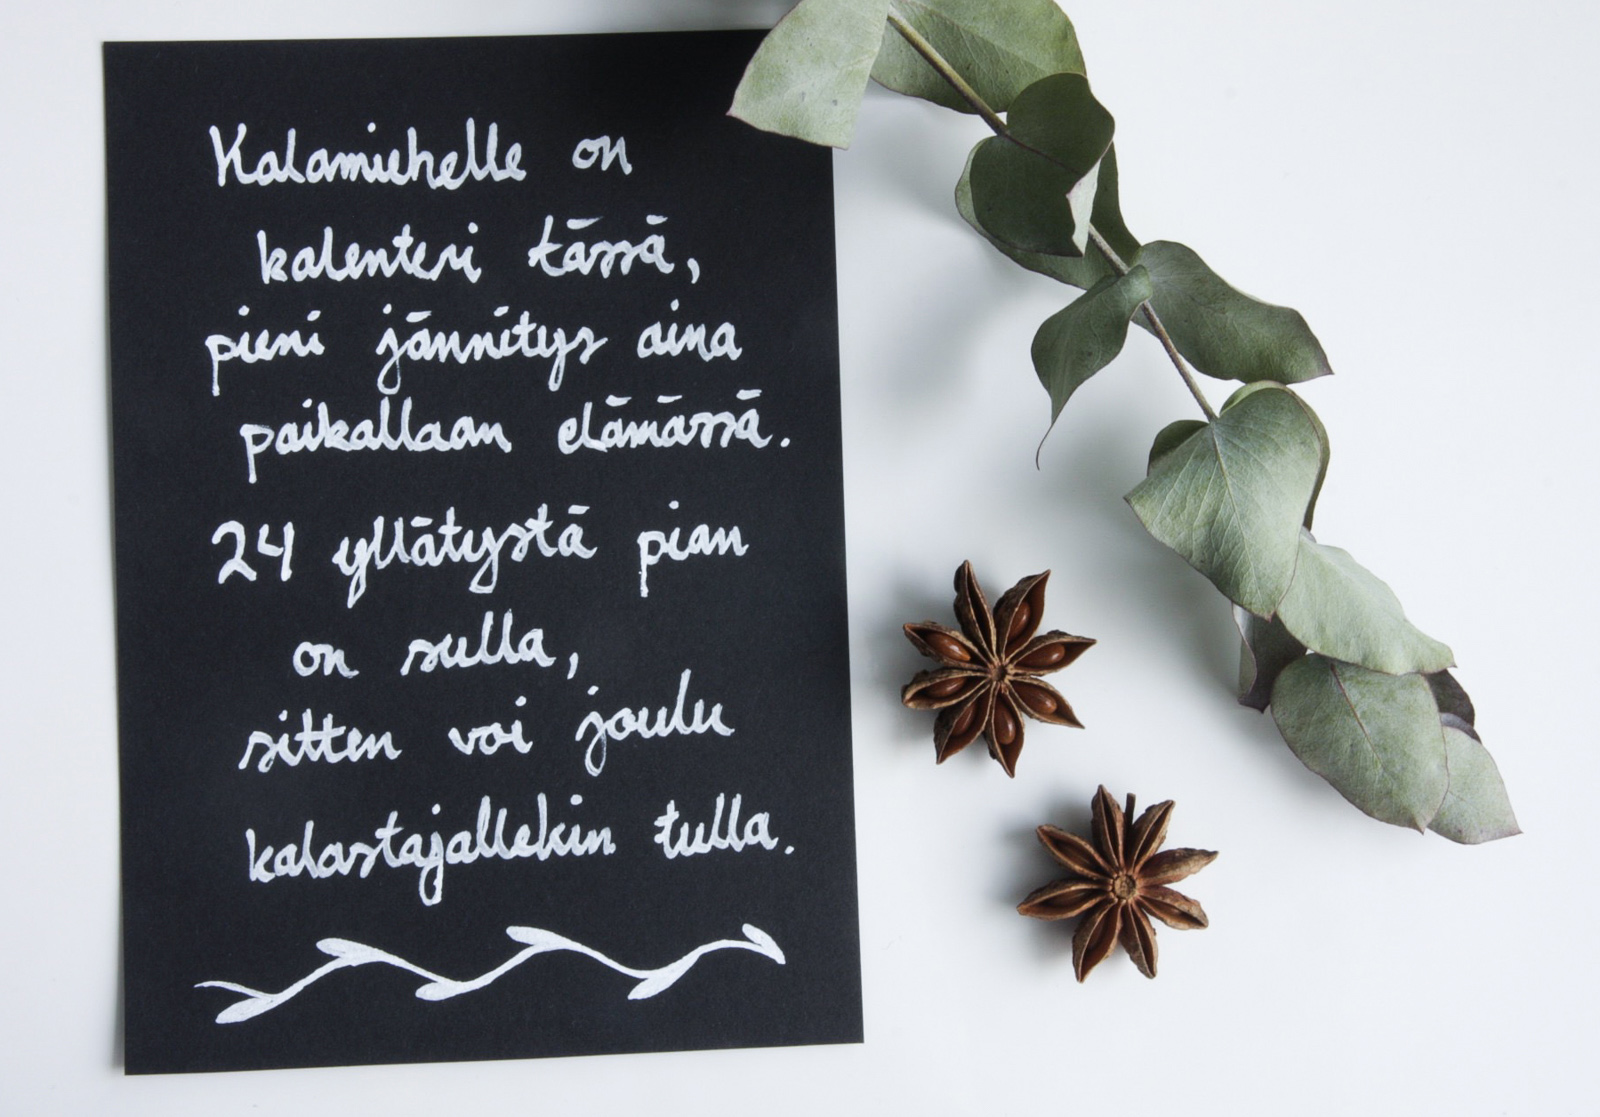 Kalamiehelle on
kalenteri tässä,
pieni jännitys aina
paikallaan elämässä.
24 yllätystä pian
on sulla,
sitten voi joulu
kalastajallekin tulla.